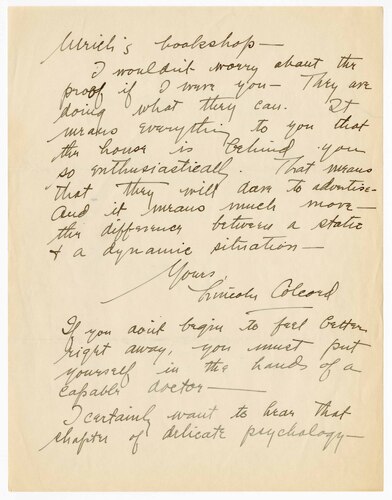 Ulrich's bookshop—
I wouldn't worry about the
proof if I were you— They are
doing what they can. It
means everything to you that
the house is behind you
so enthusiastically. That means
that they will dare to advertise—
And it means much more—
the difference between a static
& a dynamic situation—
Yours,
Lincoln Colcord
If you don't begin to feel better
right away, you must put
yourself in the hands of a
capable doctor—
I certainly want to hear that
chapter of delicate psychology—